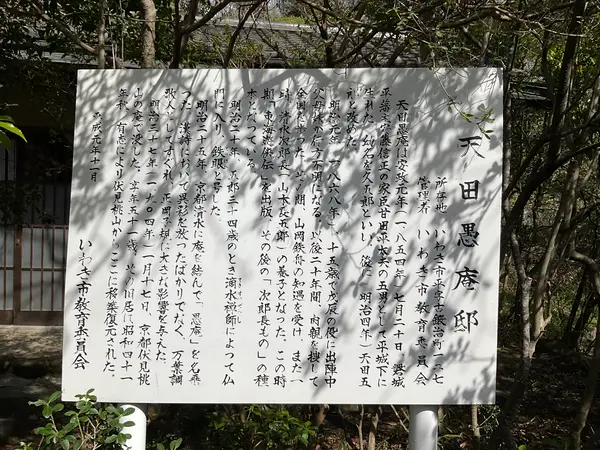 天田愚庵邸
所在地 いわき市平字古鍛冶町
管理者 いわき市教育委員会
天田愚庵は安政元年(一八五四年)七月二十日、磐城
平藩主安藤信正の家臣甘田平太夫の五男として平城下に
生れた。幼名を久五郎といい、後に(明治四年)天田五
郎と改めた。
明治元年(一八六八年)、十五歳で戊辰の役に出陣中
父母妹が行方不明になる。以後二十年間、肉親を捜して
全国を
の間、山岡鉄舟の知遇を受け、また一
時、清水次郎長(山本長五郎)の養子となった。この時
期「東海遊侠伝」を出版、その後の「次郎長もの」の種
本となっている。
明治二十年、五郎三十四歳のとき滴水禅師によって仏
門に入り、鉄眼と号した。
明治二十五年、京都清水に庵を結んで「愚庵」を名乗
った。漢詩において異彩を放ったばかりでなく、万葉調
歌人としてもすぐれ、正岡子規に大きな影響を与えた。
明治三十七年(一九〇四年)一月十七日、京都伏見桃
山の庵で没した。享年五十一歳。その旧居は昭和四十一
年秋、有志により伏見桃山からここに移築復元された。
平成元年十一月
いわき市教育委員会